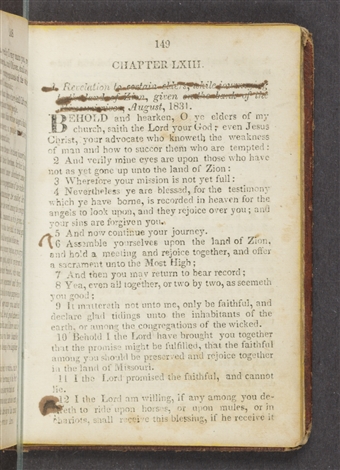 149
CHAPTER LXIII.
1 Revelation to certain elders, while
given
August, 1831.
BEHOLD and hearken, O ye elders of my
church, saith the Lord your God; even Jesus
Christ, your advocate who knoweth the weakness
of man and how to succor them who are tempted:
2 And verily mine eyes are upon those who have
not as yet gone up unto the land of Zion:
3 Wherefore your mission is not yet full:
4 Nevertheless ye are blessed, for the testimony
which ye have borne, is recorded in heaven for the
angels to look upon, and they rejoice over you; and
your sins are forgiven you.
5 And now continue your journey.
6 Assemble yourselves upon the land of Zion,
and hold a meeting and rejoice together, and offer
a sacrament unto the Most High;
7 And then you may return to bear record;
8 Yea, even all together, or two by two, as seemeth
you good;
9 It mattereth not unto me, only be faithful, and
declare glad tidings unto the inhabitants of the
earth, or among the congregations of the wicked.
10 Behold I the Lord have brought you together
that the promise might be fulfilled, that the faithful
among you should be preserved and rejoice together
in the land of Missouri.
11 I the Lord promised the faithful, and cannot
lie.
12 I the Lord am willing, if any among you de-
sireth to ride upon horses, or upon mules, or in
chariots, shall receive this blessing, if he receive it